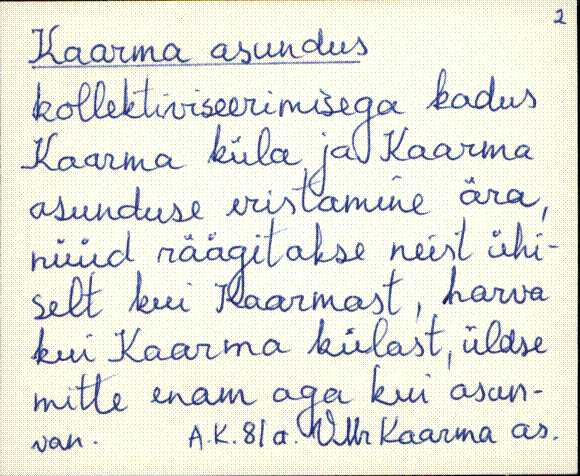 2
Kaarma asundus
kollektiviseerimisega kadus
Kaarma küla ja Kaarma
asunduse eristamine ära,
nüüd räägitakse neist ühi-
selt kui Kaarmast, harva
kui Kaarma külast, üldse
mitte enam aga kui asun-
van. A.K. 81 a. VMr Kaarma as.